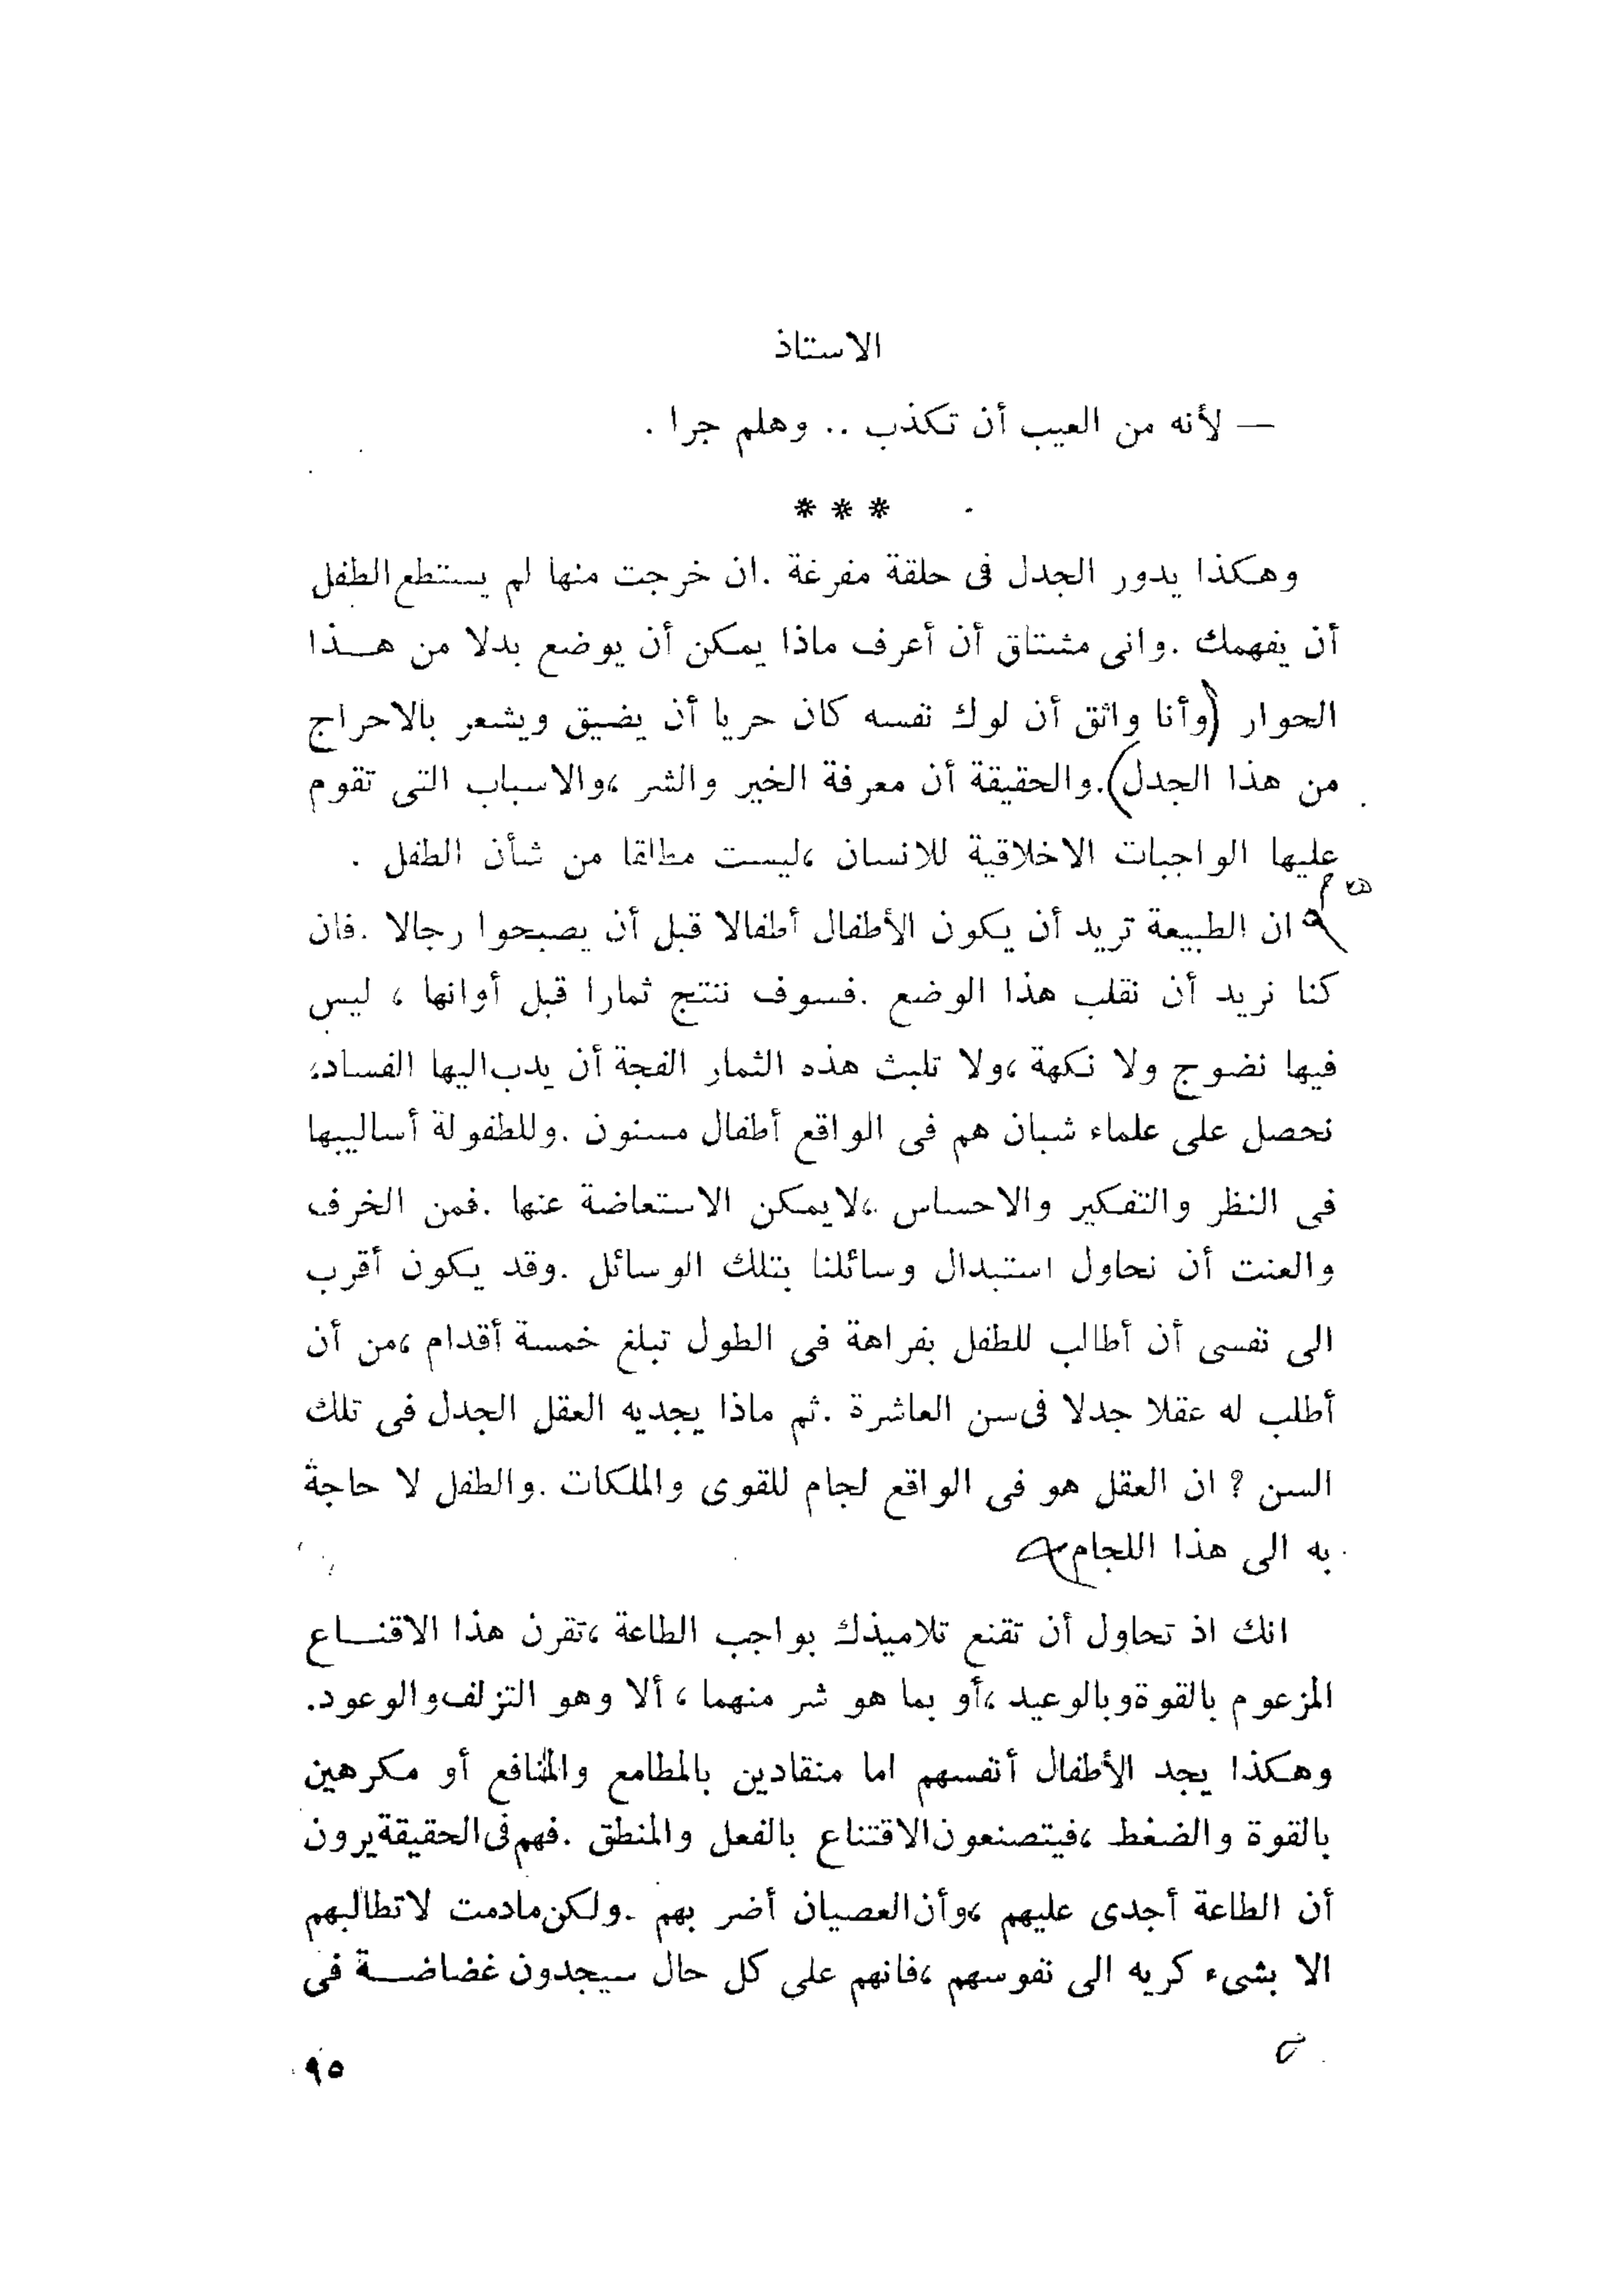 الاستاذ
— لأنه من العيب أن تكذب .. وهلم جرا .
* * *
وهكذا يدور الجدل فى حلقة مفرغة . ان خرجت منها لم يستطع الطفل
أن يفهمك . وانى مشتاق أن أعرف ماذا يمكن أن يوضع بدلا من هــذا
الحوار (وأنا واثق أن لوك نفسه كان حريا أن يضيق ويشعر بالاحراج
من هذا الجدل). والحقيقة أن معرفة الخير والشر ، والاسباب التى تقوم
عليها الواجبات الاخلاقية للانسان ، ليست مطلقا من شأن الطفل .
ان الطبيعة تريد أن يكون الأطفال أطفالا قبل أن يصبحوا رجالا . فان
كنا نريد أن نقلب هذا الوضع . فسوف ننتج ثمارا قبل أوانها ، ليس
فيها نضوج ولا نكهة ، ولا تلبث هذه الثمار الفجة أن يدب اليها الفساد،
نحصل على علماء شبان هم فى الواقع أطفال مسنون . وللطفولة أساليبها
فى النظر والتفكير والاحساس ، لايمكن الاستعاضة عنها . فمن الخرف
والعنت أن نحاول استبدال وسائلنا بتلك الوسائل . وقد يكون أقرب
الى نفسى أن أطالب للطفل بفراهة فى الطول تبلغ خمسة أقدام ، من أن
أطلب له عقلا جدلا فى سن العاشرة . ثم ماذا يجديه العقل الجدل فى تلك
السن ؟ ان العقل هو فى الواقع لجام للقوى والملكات . والطفل لا حاجة
به الى هذا اللجام
انك اذ تحاول أن تقنع تلاميذك بواجب الطاعة ، تقرن هذا الاقنــاع
المزعوم بالقوة وبالوعيد ، أو بما هو شر منهما ، ألا وهو التزلف والوعود.
وهكذا يجد الأطفال أنفسهم اما منقادين بالمطامع والمنافع أو مكرهين
بالقوة والضغط ، فيتصنعون الاقتناع بالفعل والمنطق . فهم فى الحقيقة يرون
أن الطاعة أجدى عليهم ، وأن العصيان أضر بهم . ولكن مادمت لاتطالبهم
الا بشىء كريه الى نفوسهم ، فانهم على كل حال سيجدون غضاضــة فى
٩٥